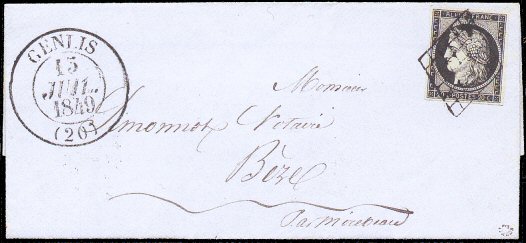 GENLIS
15
JUIL.
1849
(20)
REPUB. FRANC.
20 POSTES 20 c
Monsieur
Limonnet Notaire
Bèze
Par Mirebeau